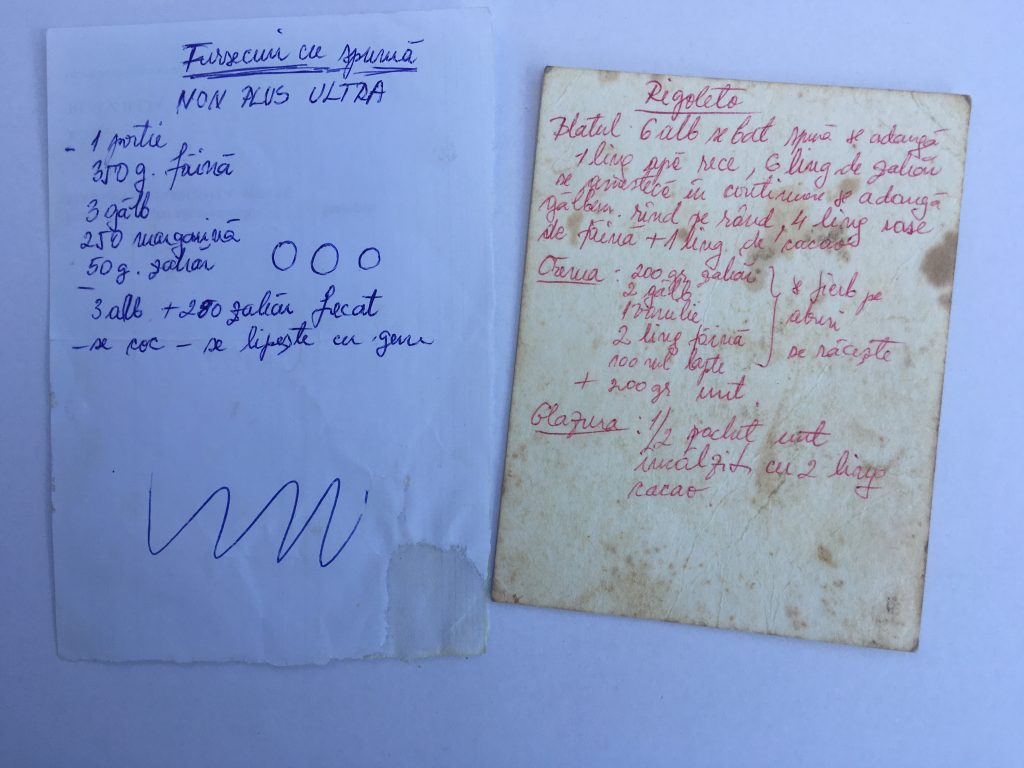 Fursecuri cu spumă
NON PLUS ULTRA
- 1 portie
350 g. făină
3 gălb
250 margarină
50 g. zahăr
3 alb + 250 zahăr fecat
- se coc - se lipește cu gem
Rigoleto
Blatul: 6 alb se bat spumă se adaugă
1 ling apă rece, 6 ling de zahăr
se amestecă în continuare se adaugă
gălben. rînd pe rând, 4 ling rase
de făină + 1 ling. de cacao
Crema: 200 gr. zahăr
2 gălb
1 vanilie
2 ling făină
100 ml lapte
+ 200 gr unt
se fierb pe
aburi
se răcește
Glazura: 1/2 pachet unt
încălzit cu 2 ling
cacao